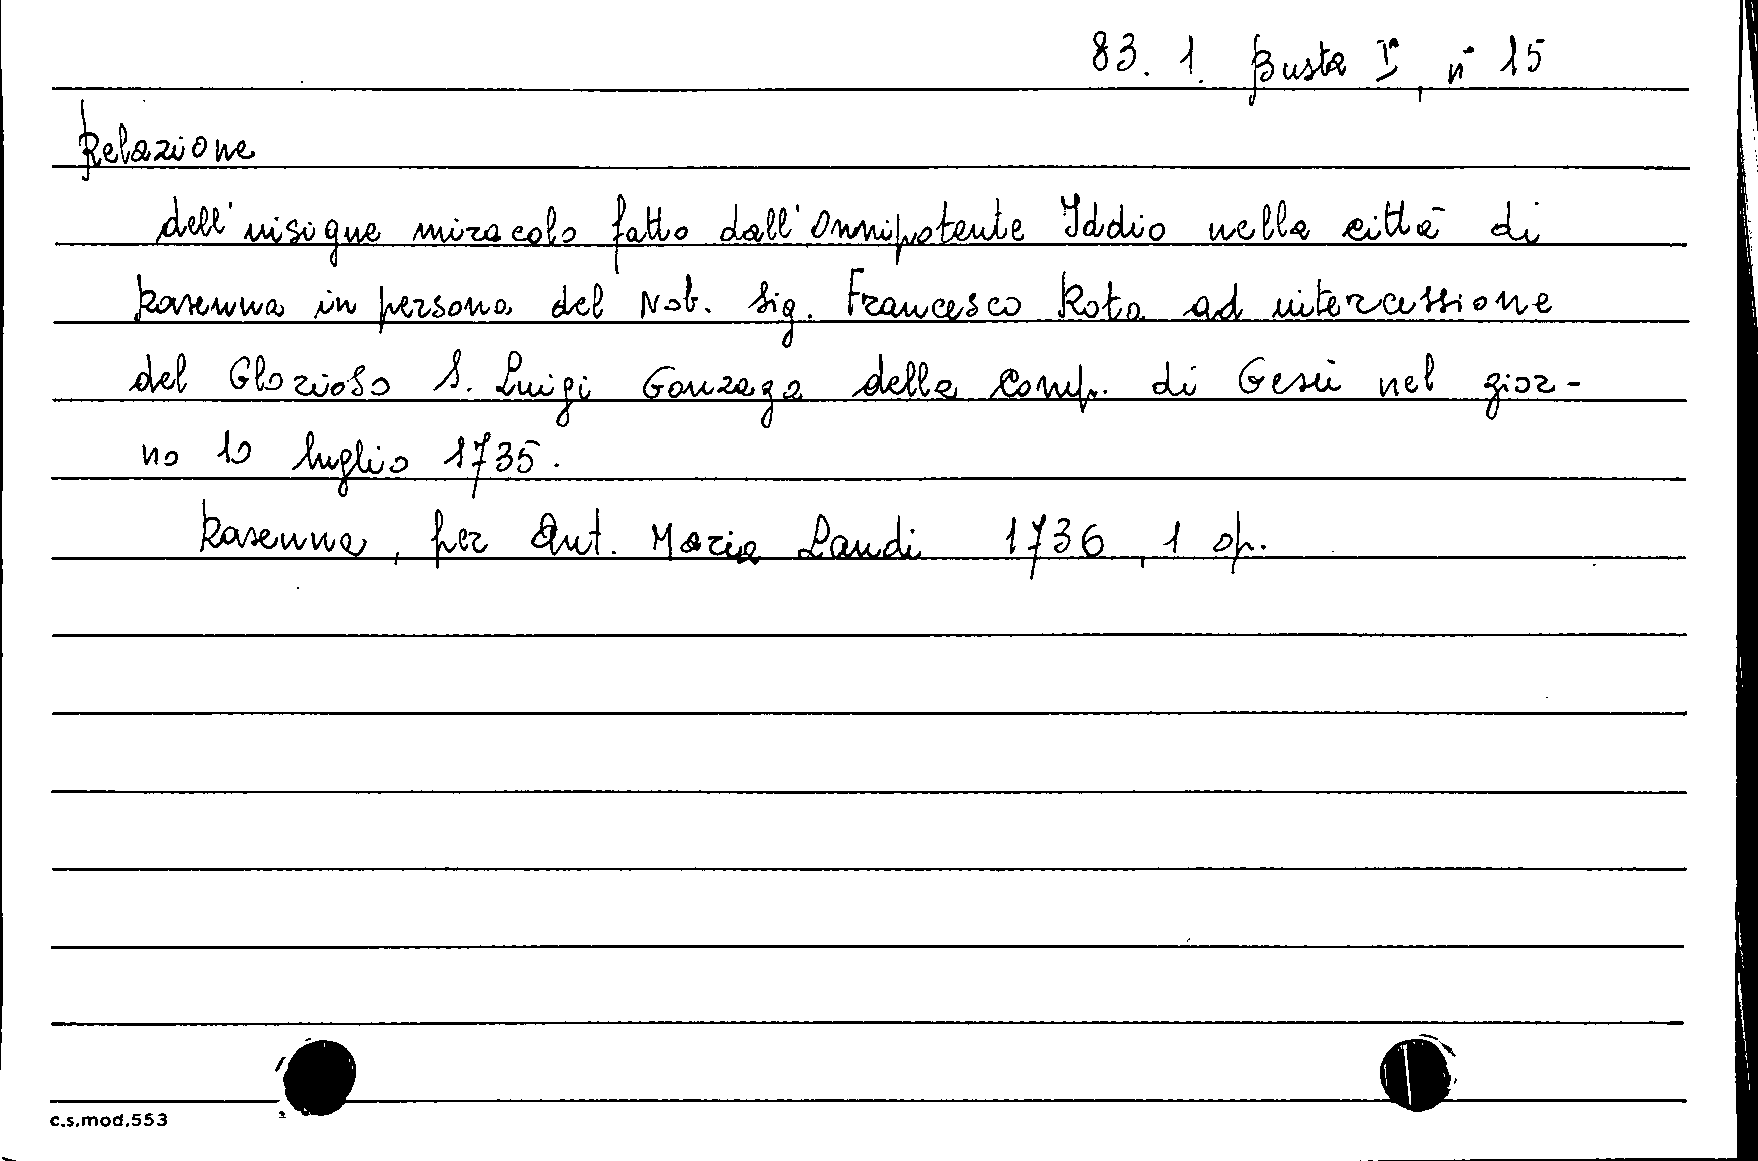 83. 1. Busta Iª, n° 15
Relazione
dell'insigne miracolo fatto dall'Onnipotente Iddio nella città di
Ravenna in persona del Nob. Sig. Francesco Rota ad intercessione
del Glorioso S. Luigi Gonzaga della Comp. di Gesù nel gior-
no 10 luglio 1735.
Ravenna, per Ant. Maria Landi 1736, 1 op.
c.s.mod.553